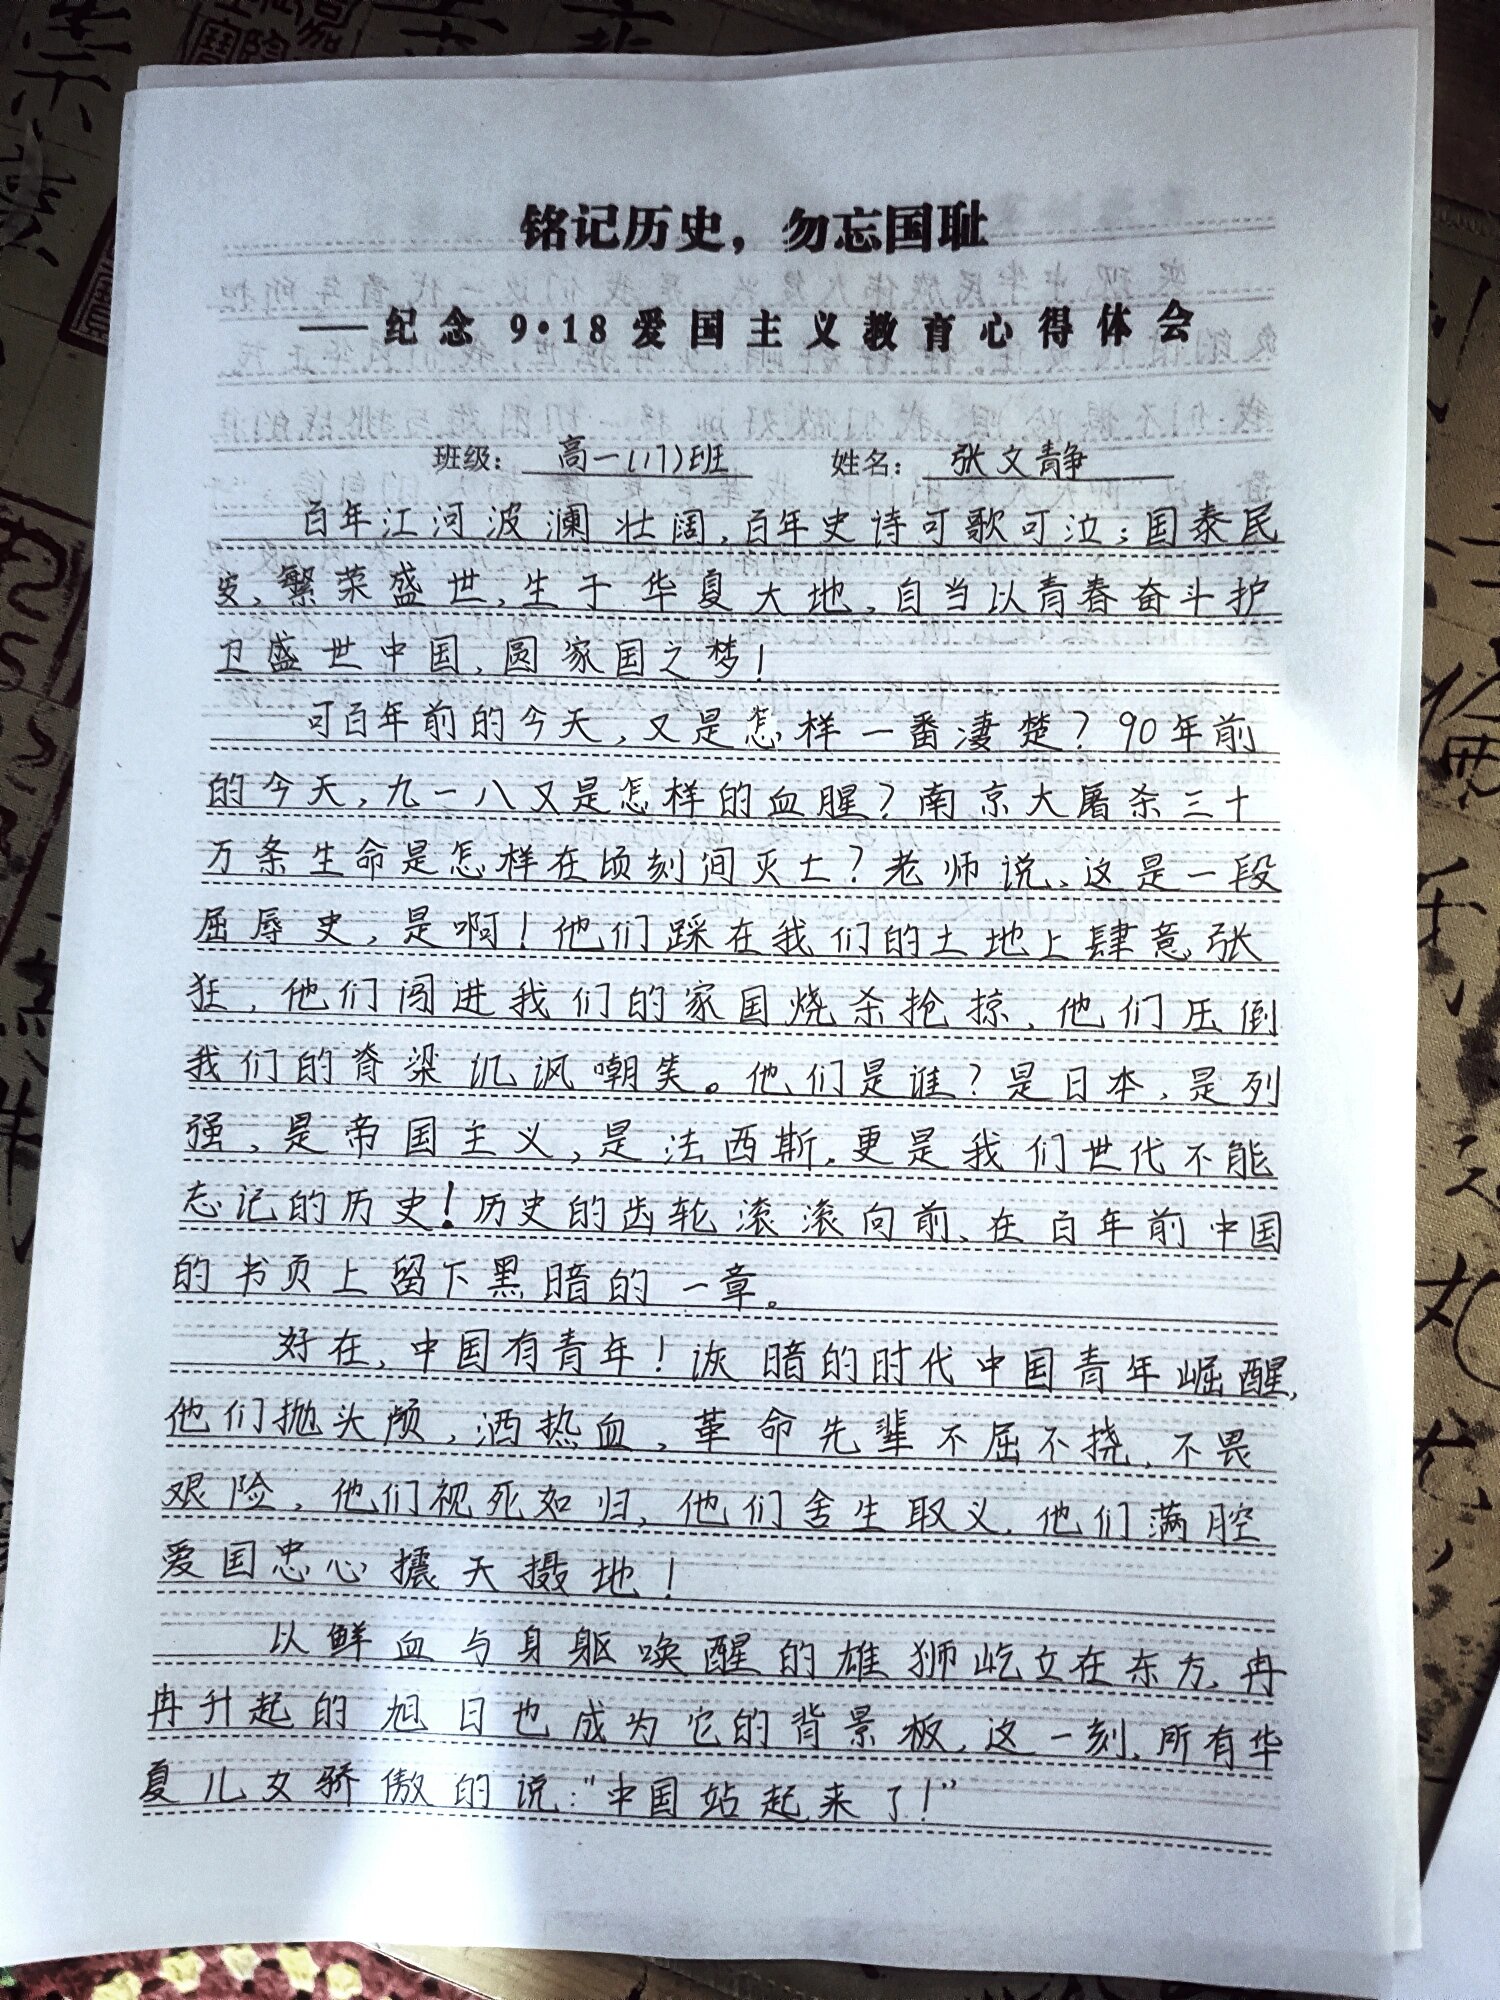 铭记历史，勿忘国耻
——纪念9·18爱国主义教育心得体会
班级：高一(17)班 姓名：张文静
百年江河波澜壮阔，百年史诗可歌可泣；国泰民
安，繁荣盛世，生于华夏大地，自当以青春奋斗护
卫盛世中国，圆家国之梦！
可百年前的今天，又是怎样一番凄楚？90年前
的今天，九一八又是怎样的血腥？南京大屠杀三十
万条生命是怎样在顷刻间灭亡？老师说，这是一段
屈辱史，是啊！他们踩在我们的土地上肆意张
狂，他们闯进我们的家国烧杀抢掠，他们压倒
我们的脊梁讥讽嘲笑。他们是谁？是日本，是列
强，是帝国主义，是法西斯，更是我们世代不能
忘记的历史！历史的齿轮滚滚向前，在百年前中国
的书页上留下黑暗的一章。
好在，中国有青年！诙暗的时代中国青年崛醒，
他们抛头颅，洒热血，革命先辈不屈不挠，不畏
艰险，他们视死如归，他们舍生取义，他们满腔
爱国忠心 天摄地！
以鲜血与身躯唤醒的雄狮屹立在东方，冉
冉升起的旭日也成为它的背景板，这一刻，所有华
夏儿女骄傲的说："中国站起来了！"